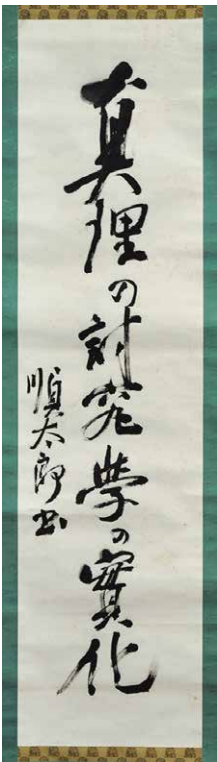 真理の討究学の實化
順太郎書